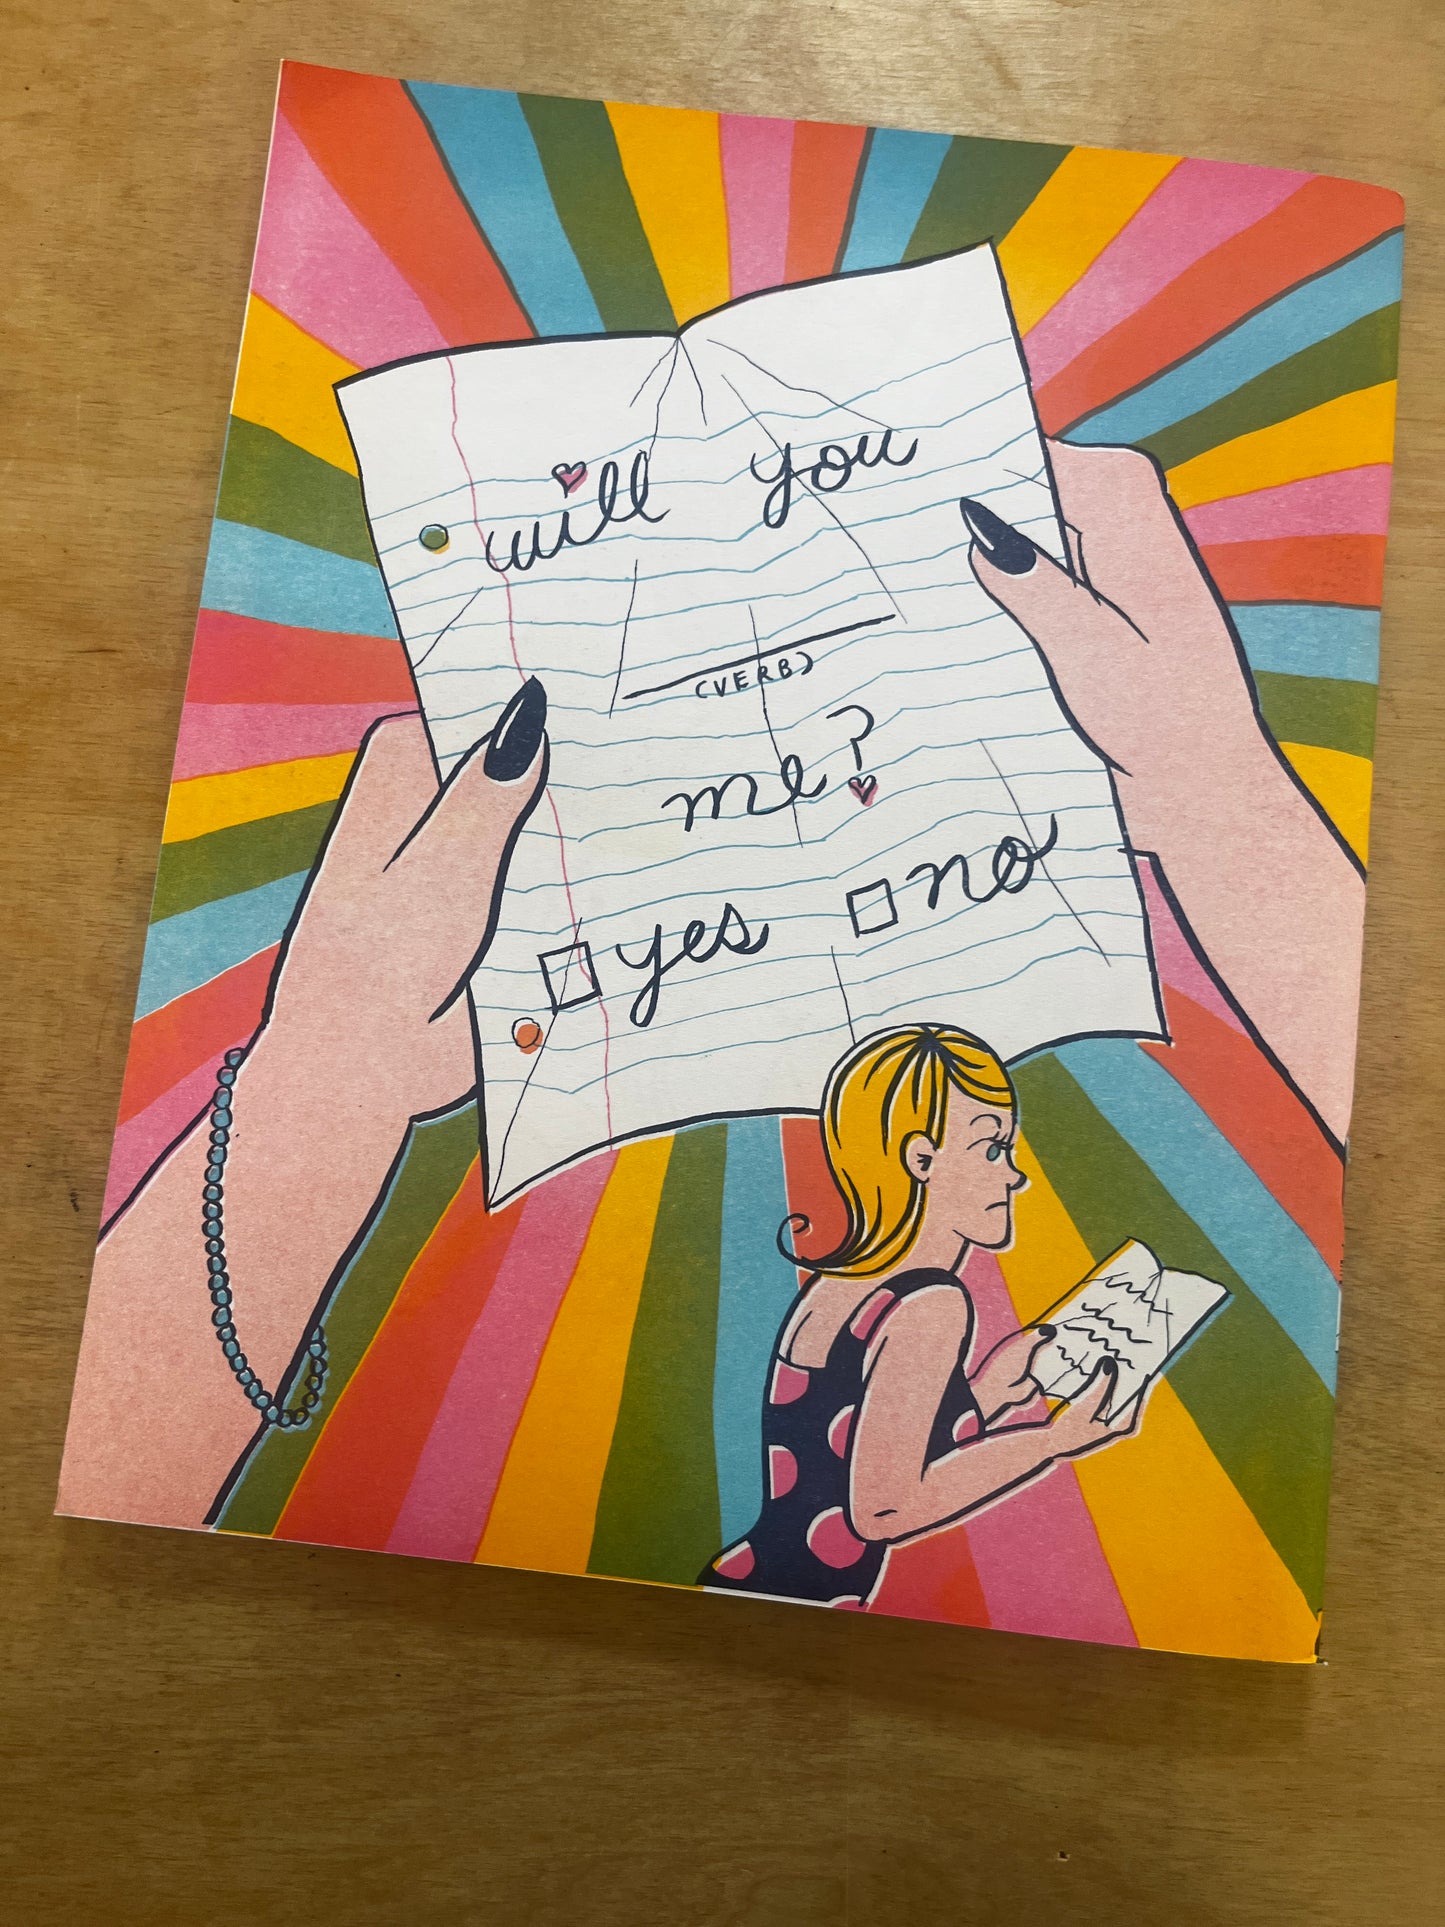 will you
(VERB)
me?
yes no